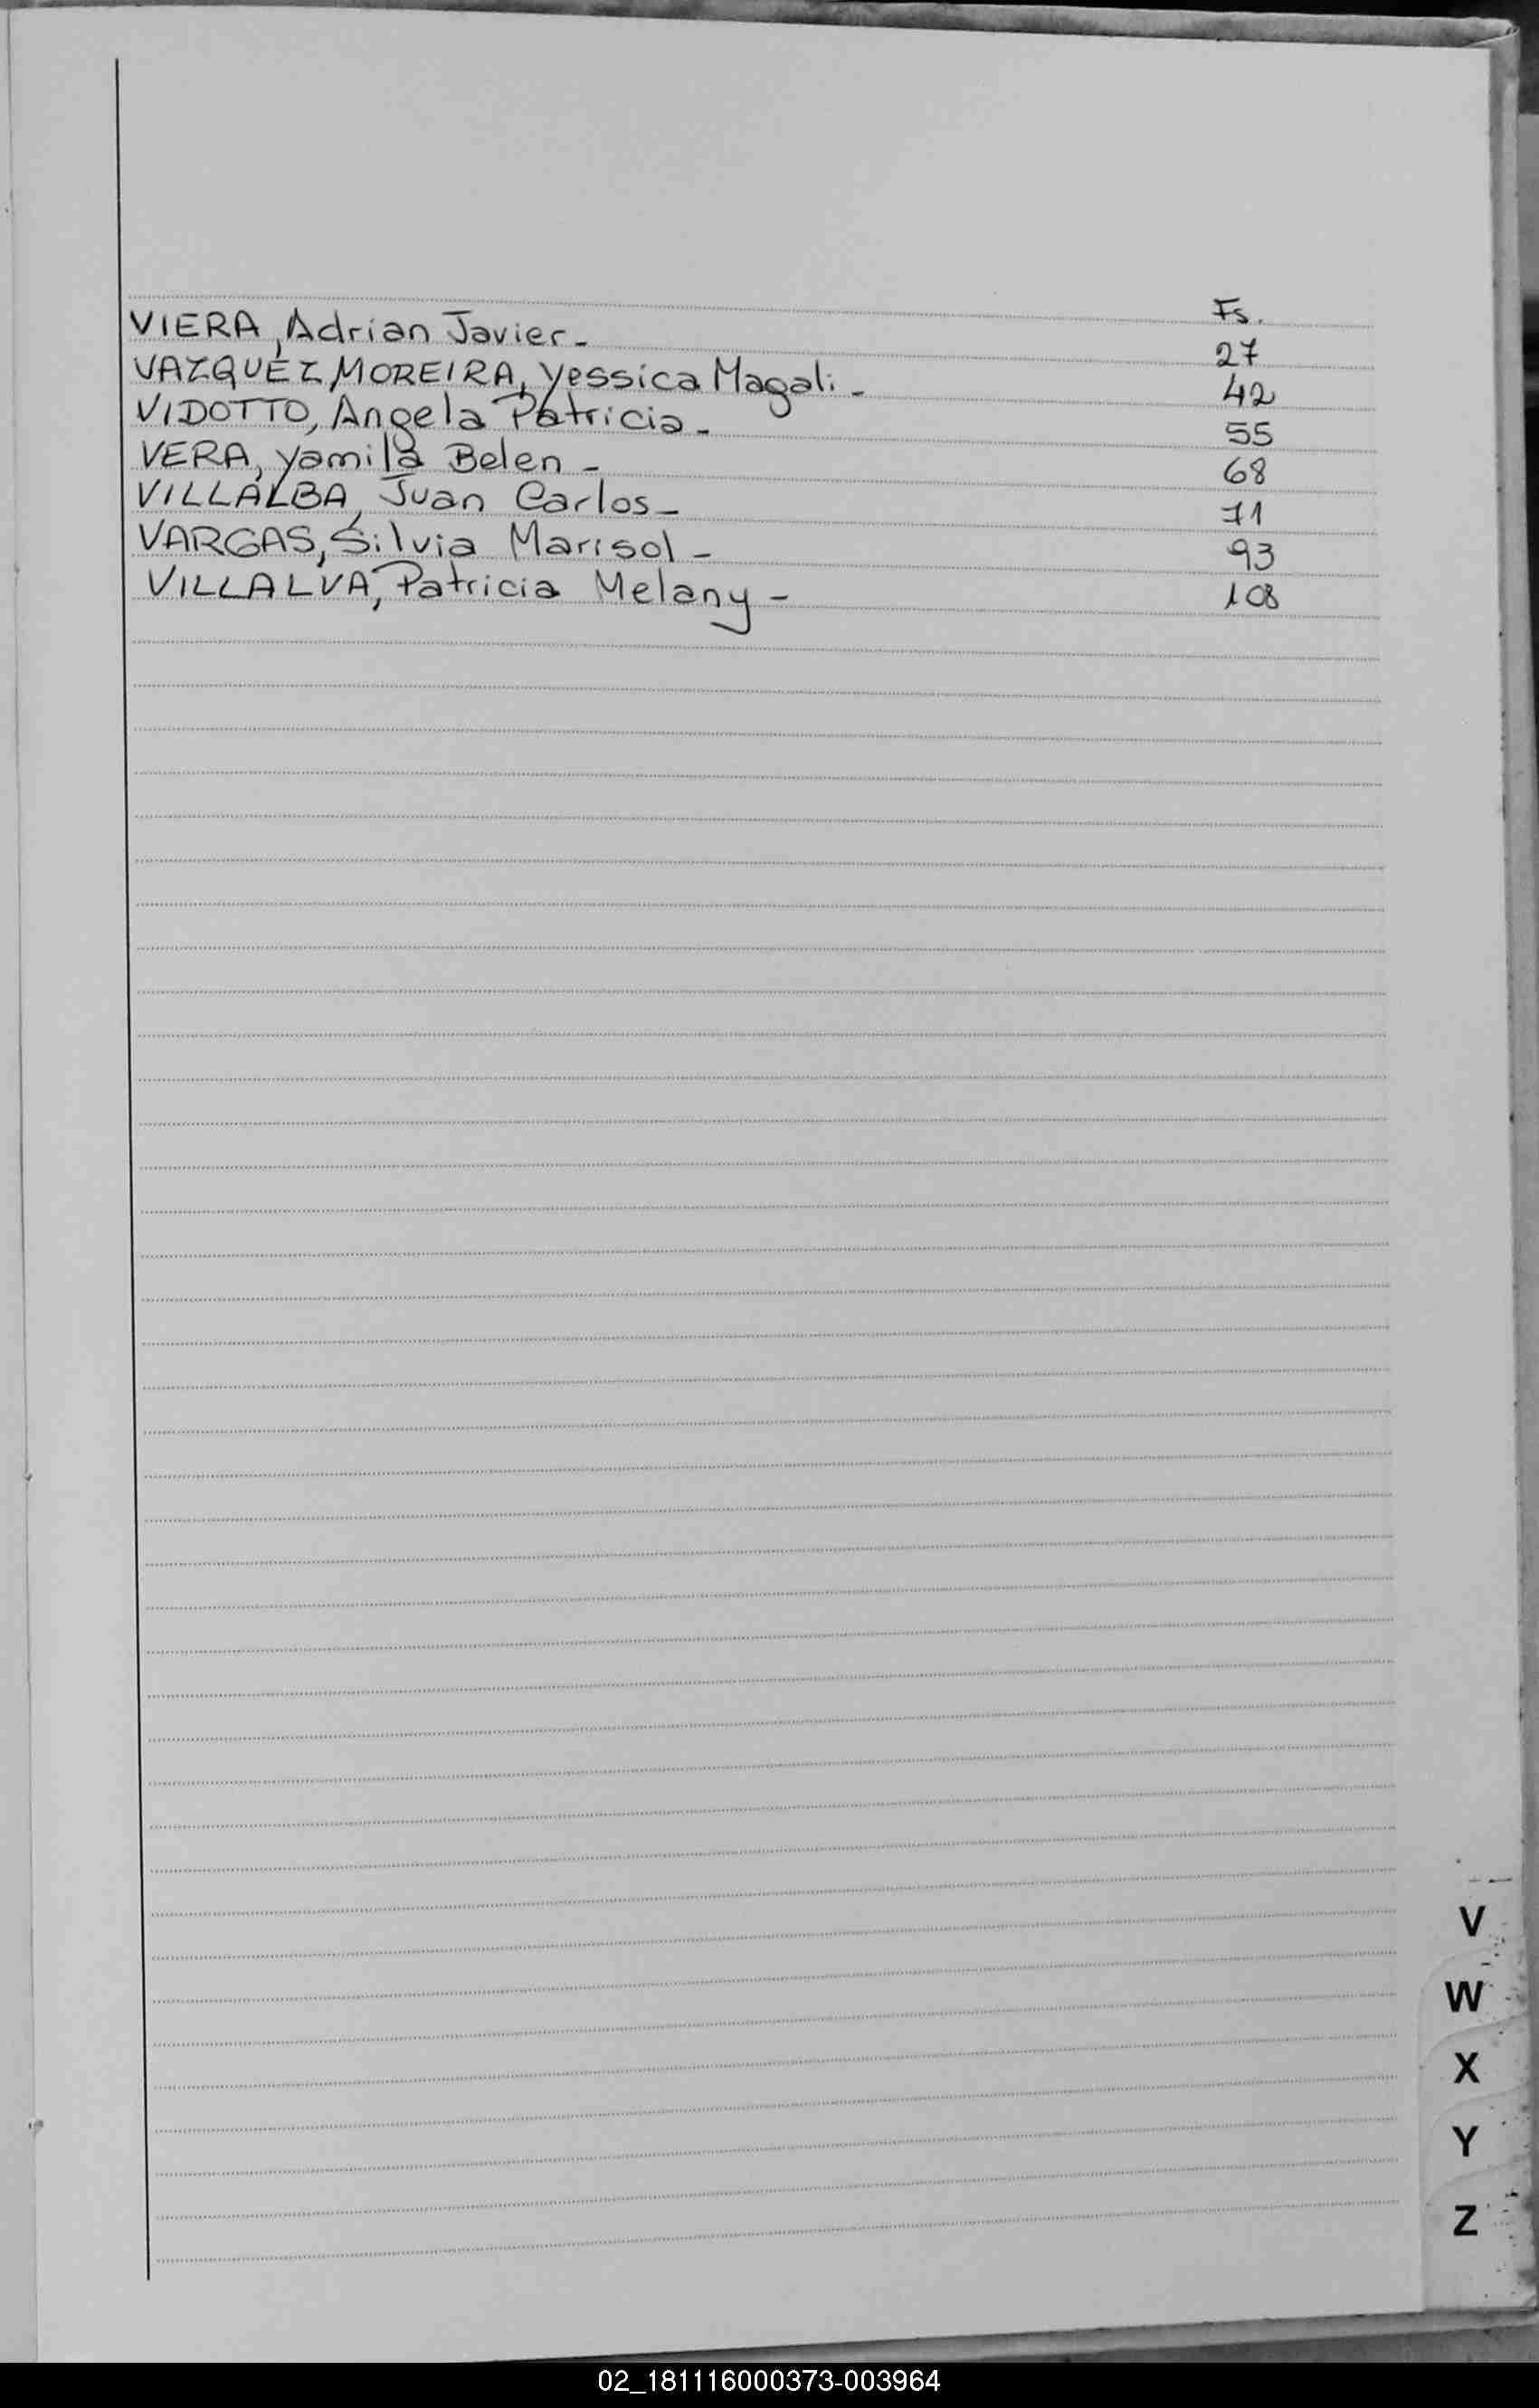 Fs.
VIERA, Adrian Javier - 27
VAZQUEZ MOREIRA, Yessica Magali - 42
VIDOTTO, Angela Patricia - 55
VERA, Yamila Belen - 68
VILLALBA, Juan Carlos - 71
VARGAS, Silvia Marisol - 93
VILLALVA, Patricia Melany - 108
V
W
X
Y
Z
02_181116000373-003964